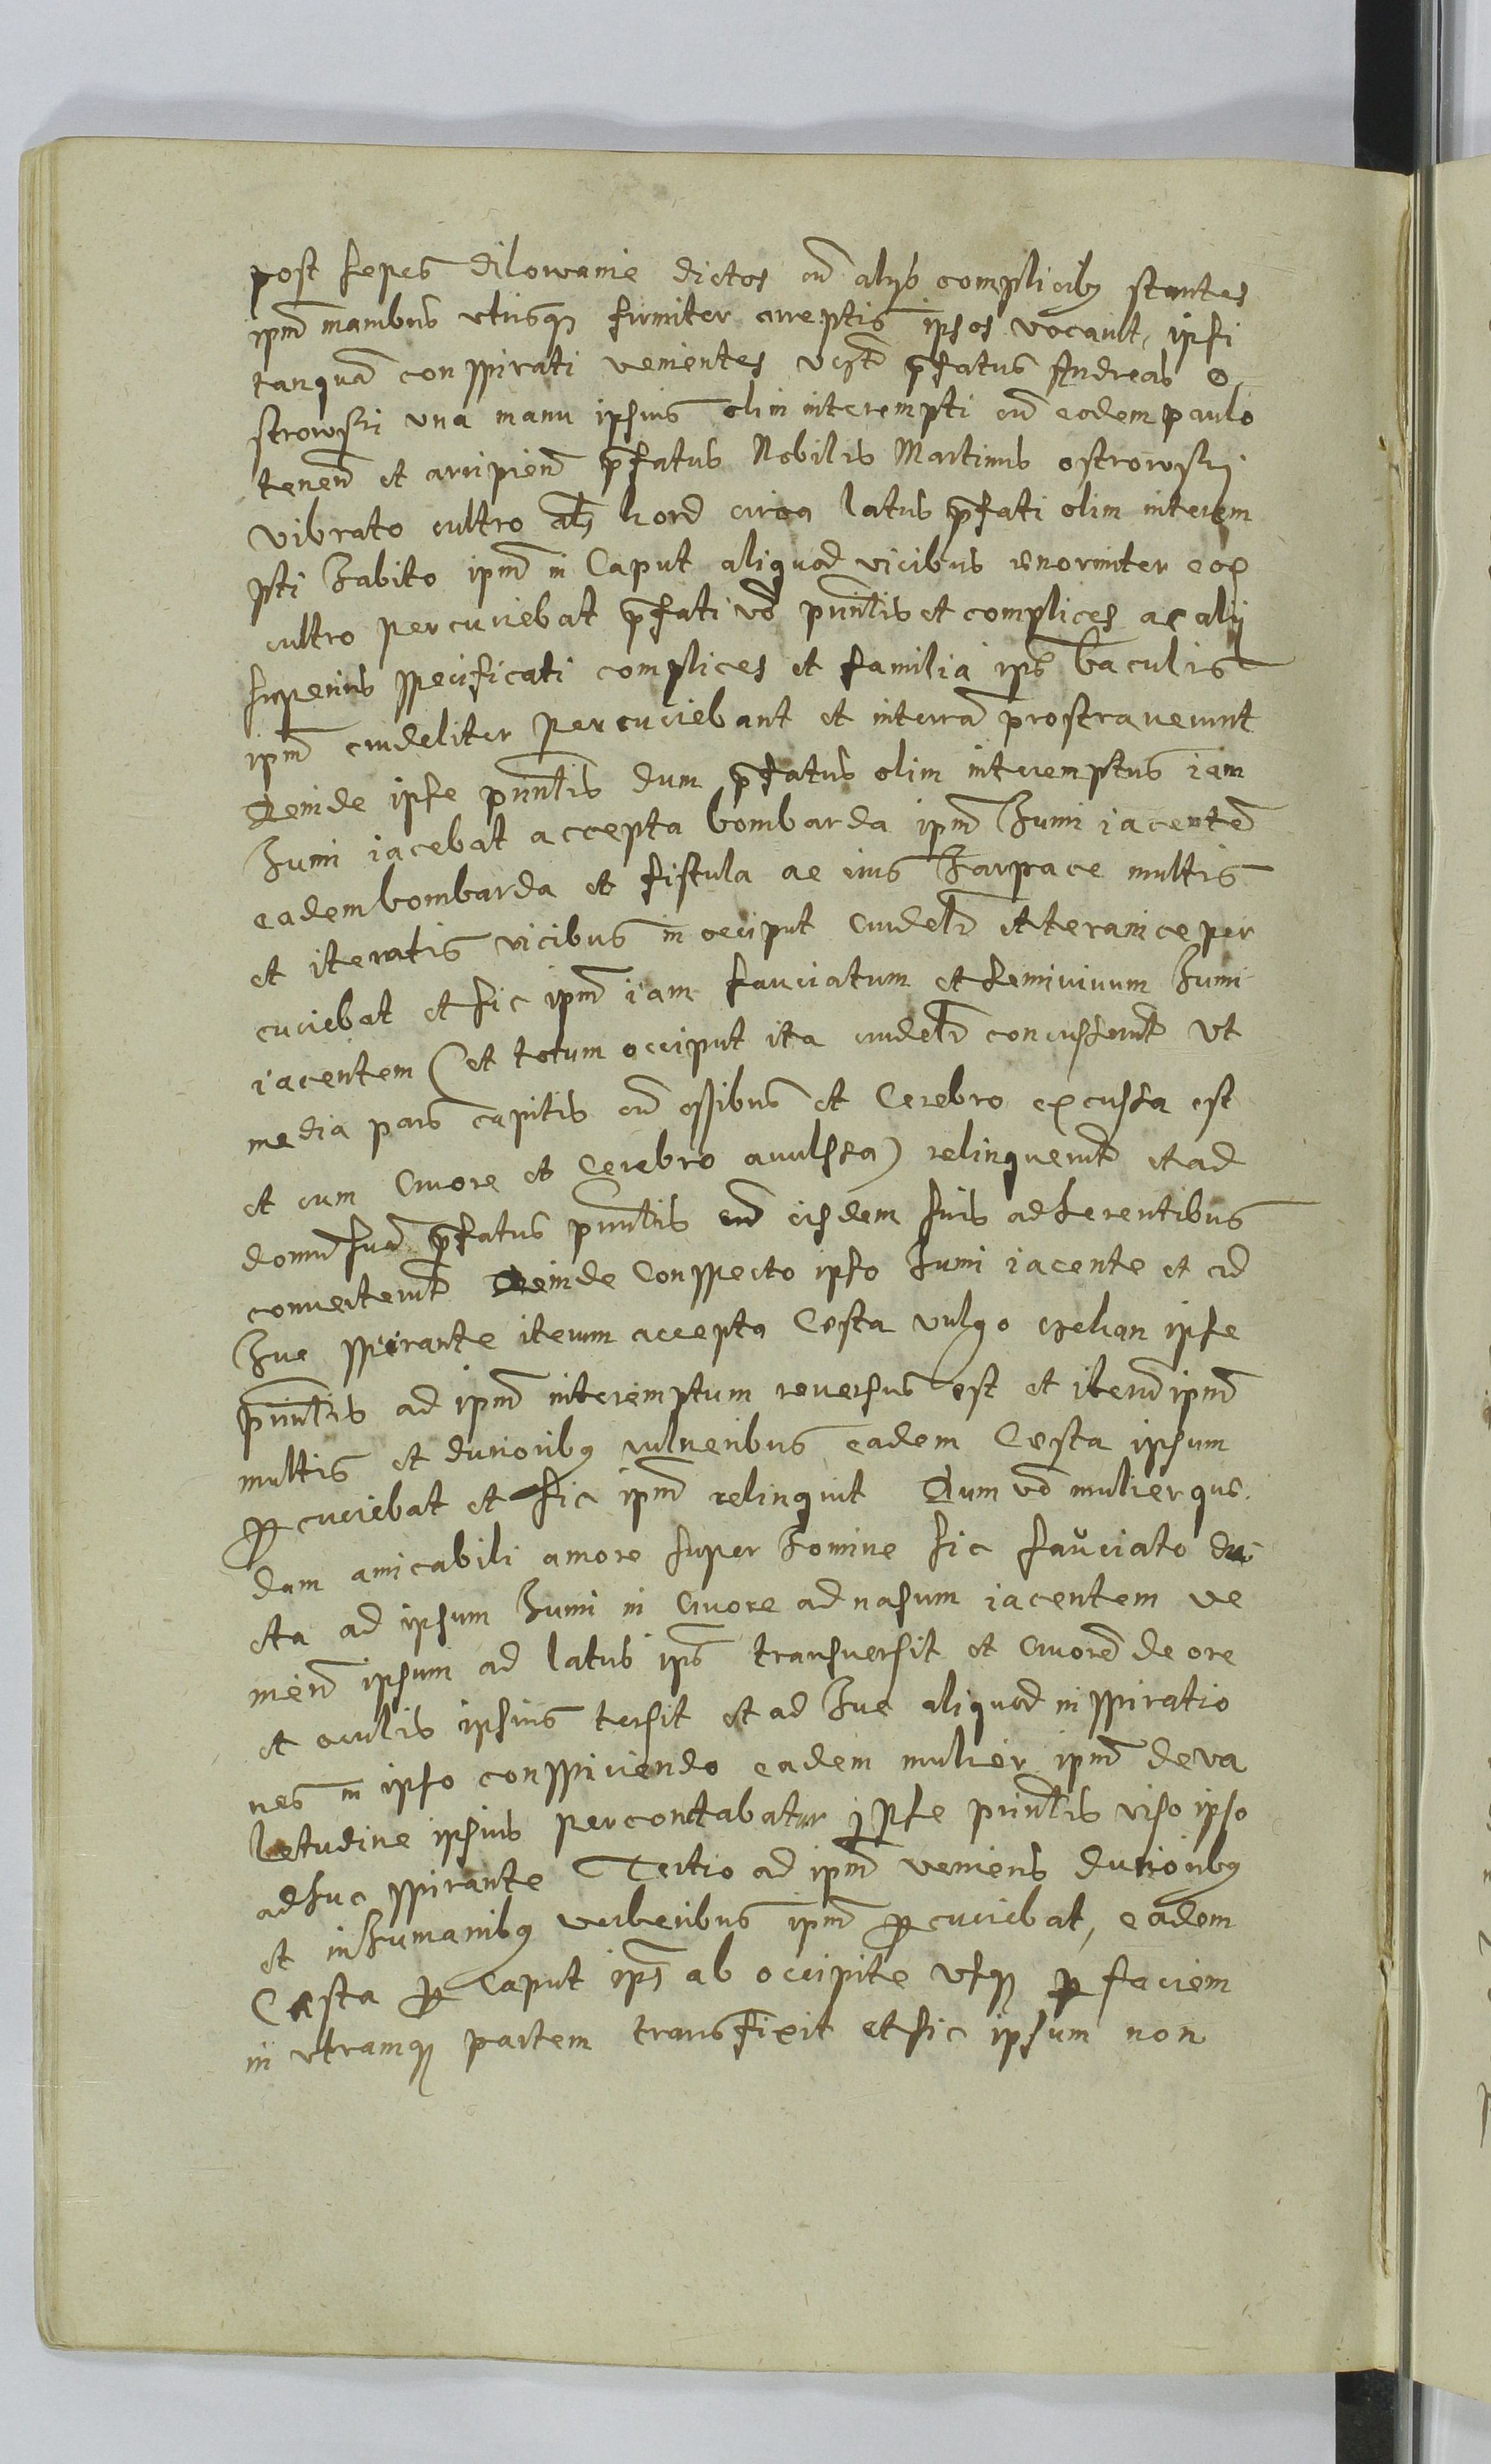 post sepes dilowanie dictos cū alijs complicib9 stantes
ipm̄ manibus vtrisq3 firmiter arreptis ipsos vocauit, ipsi
tanquā conspirati venientes vest̄ p̄fatus Andreas O-
strowski vna manu ipsius olim interempti cū eodem paulo
tenen̄ et arripien̄ p̄fatus Nobilis Martinus ostrowskj
vibrato cultro als kord circa latus p̄fati olim interem
pti habito ipm̄ in Caput aliquod vicibus enormiter eod
cultro percuciebat p̄fati vō prin̄lis et complices ac alij
superius specificati complices et familia ips̄ baculis
ipm̄ crudeliter percuciebant et in terrā prostrauerunt
Deinde ipse prin̄lis dum p̄fatus olim interemptus iam
humi iacebat accepta bombarda ipm̄ humi iacentē
eadem bombarda et fistula ac eius harpace multis
et iteratis vicibus in occiput crudelr̄ et teranice per
cuciebat et sic ipm̄ iam sauciatum et semiuiuum humi
iacentem (et totum occiput ita crudelr̄ concusserunt̄ vt
media pars capitis cū ossibus et Cerebro excussa est
et cum Cruore et Cerebro auulssa) relinquerunt̄ et ad
domū suā p̄fatus prin̄lis cū eisdem suis adherentibus
conuerterunt̄ Deinde Conspecto ipso humi iacente et ad
huc spirante iterum accepta Cesta vulgo czekan ipse
prin̄lis ad ipm̄ interemptum reuersus est et iterū ipm̄
multis et durioribq3 vulneribus eadem Cesta ipsum
percuciebat et sic ipm̄ relinquit Dum vō mulier que
dam amicabili amore super homine sic sauciato du
cta ad ipsum humi in Cruore ad nasum iacentem ve
nien̄ ipsum ad latus ips̄ transuersit et Cruorē de ore
et oculis ipsius tersit et ad huc aliquod in spiratio
nes in ipso conspiciendo eadem mulier ipm̄ de va
letudine ipsius percontabatur ipse prin̄lis viso ipso
adhuc spirante Tertio ad ipm̄ veniens duriorib9
et inhumanib9 verberibus ipm̄ percuciebat, eadem
Cesta per Caput ips̄ ab occipite vsq3 per faciem
in vtramq3 partem transfixit et sic ipsum non